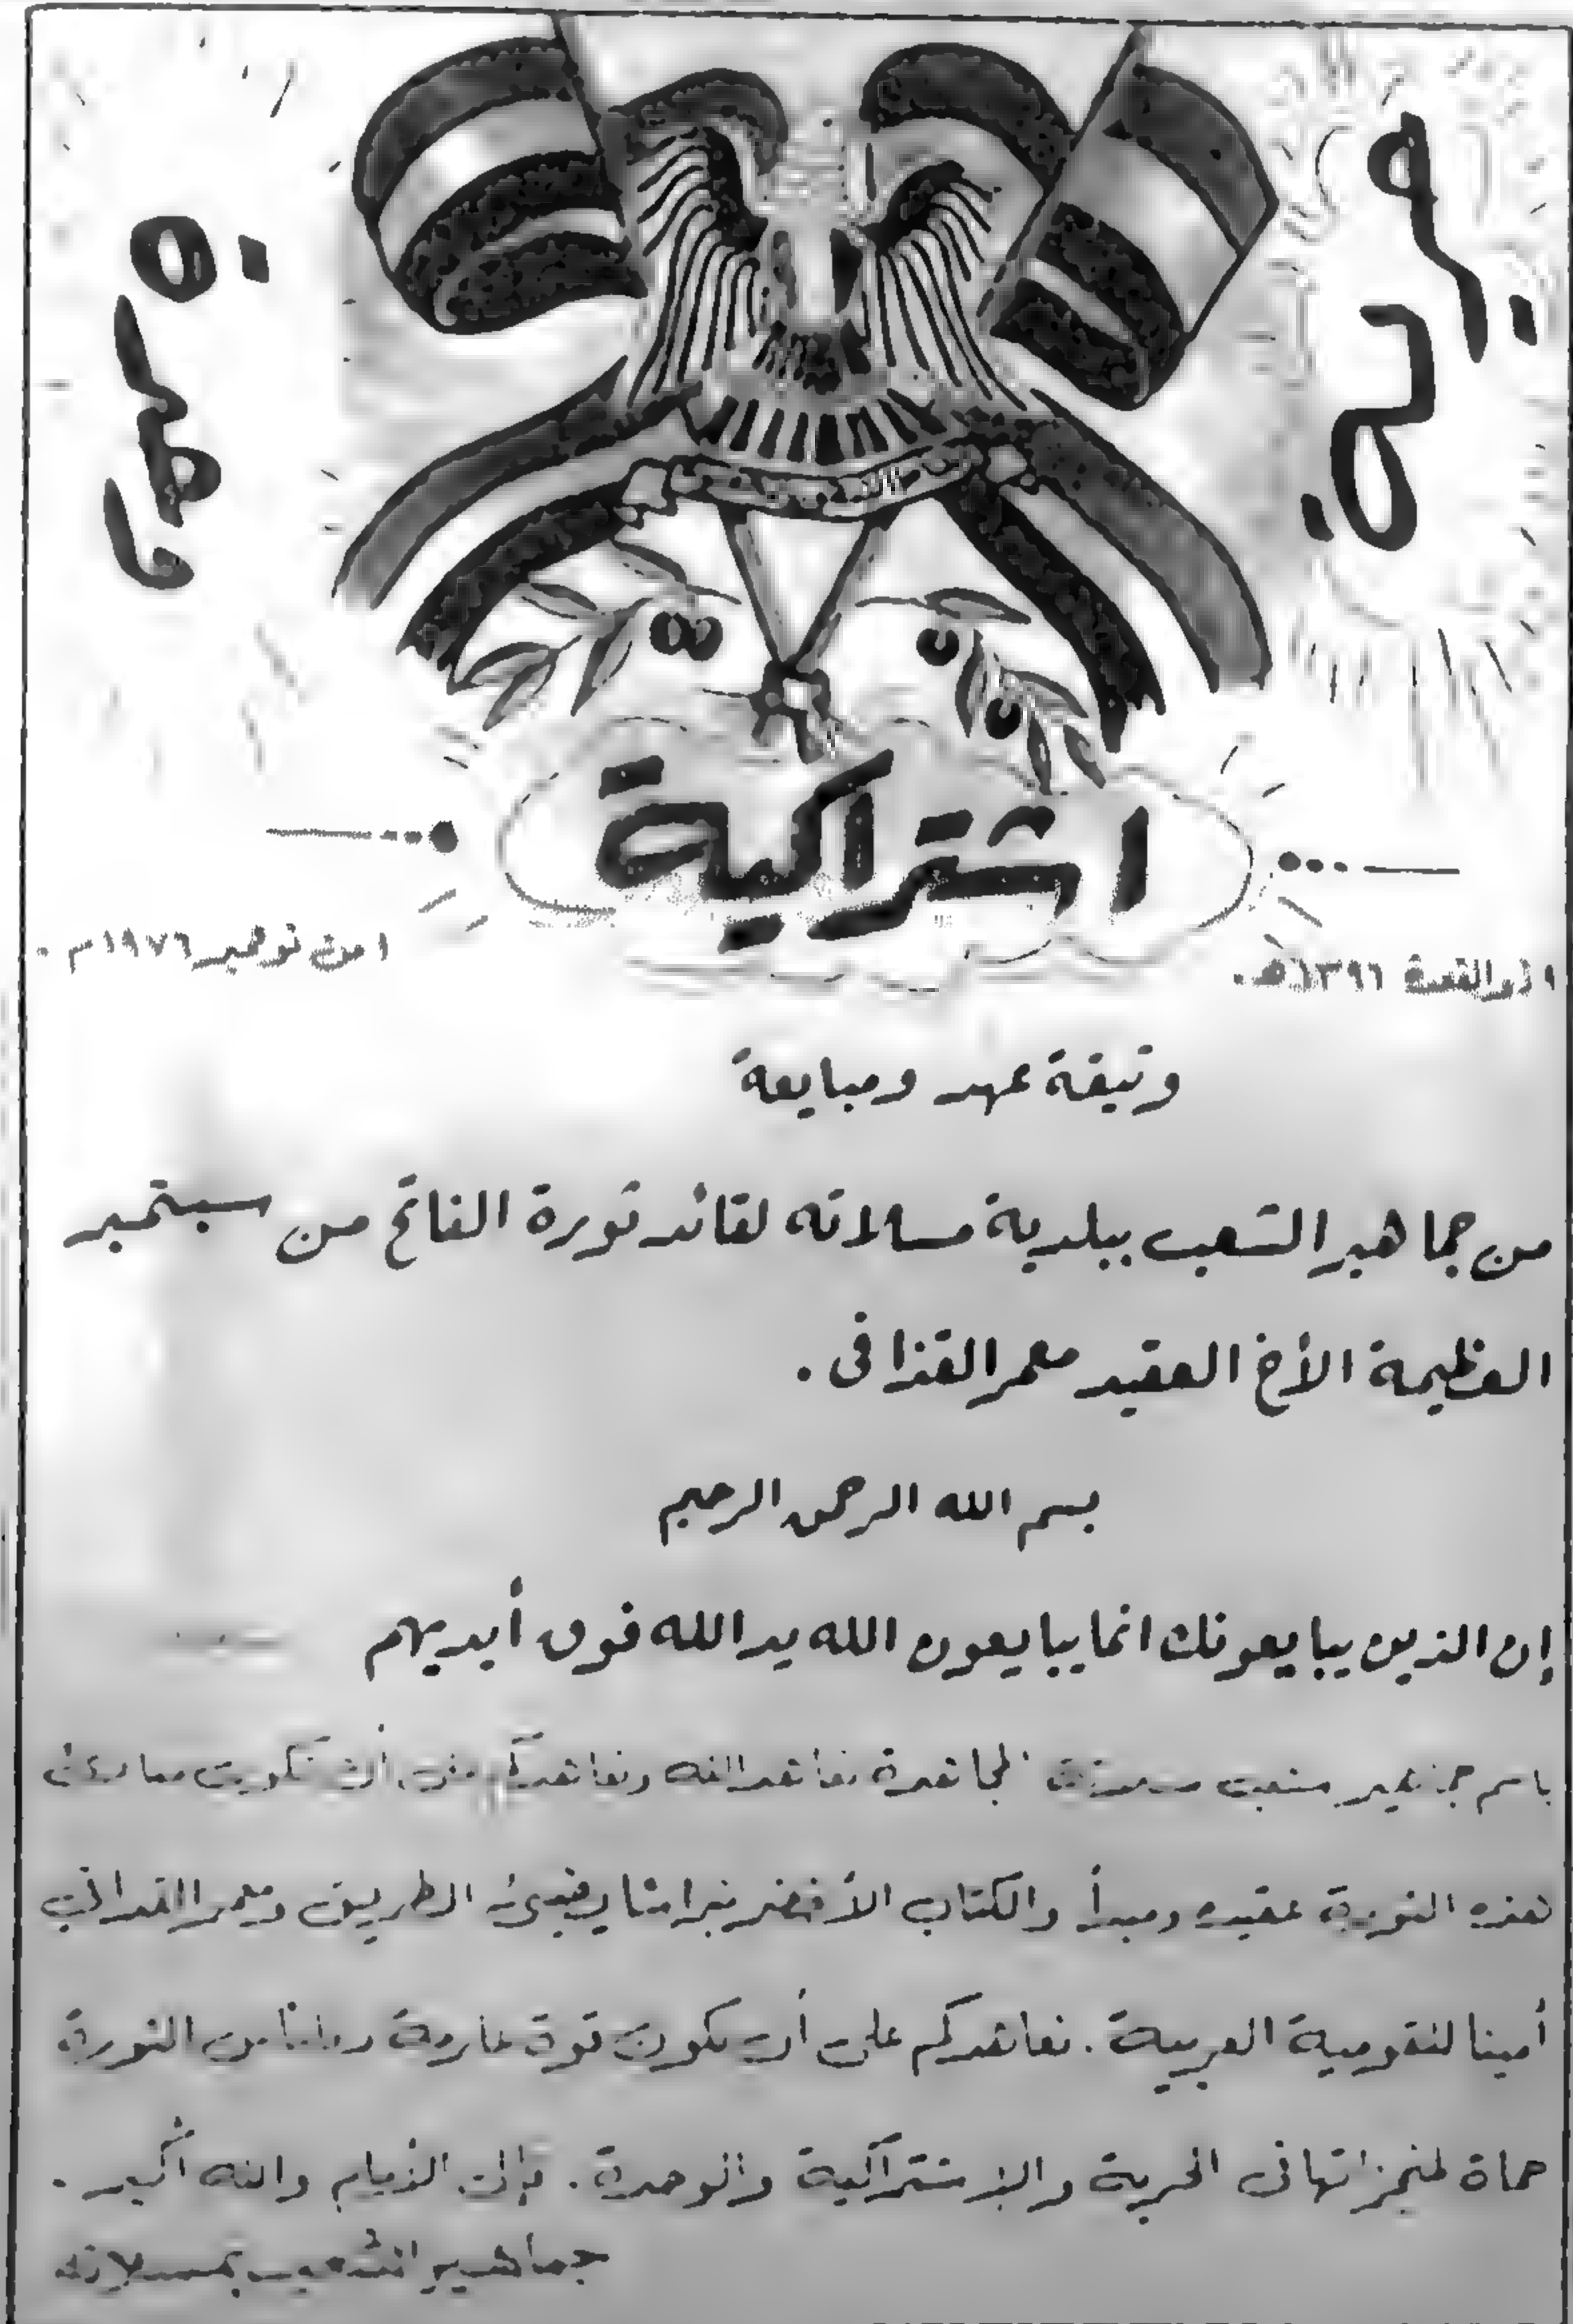 حرية
وحدة
اشتراكية
٩ ذو القعدة ١٣٩٦ه‍.
١ من نوفمبر ١٩٧٦م.
وثيقة عهد ومبايعة
من جماهير الشعب ببلدية مسلاته لقائد ثورة الفاتح من سبتمبر
العظيمة الأخ العقيد معمر القذافى .
بسم الله الرحمن الرحيم
إن الذين يبايعونك انما يبايعون الله يد الله فوق أيديهم
باسم جماهير شعب مسلاته المجاهدة نعاهد الله ونعاهدكم على أن تكون مبادئ
هذه الثورة عقيده ومبدأ والكتاب الأخضر نبراسا يضيئ الطريق ومعمر القذافى
أمينا للقومية العربية . نعاهدكم على أن نكون قوة عارمة من الثورة
حماة لمنجزاتها فى الحرية والإشتراكية والوحدة . وإلى الأمام والله أكبر .
جماهير الشعب بمسلاته